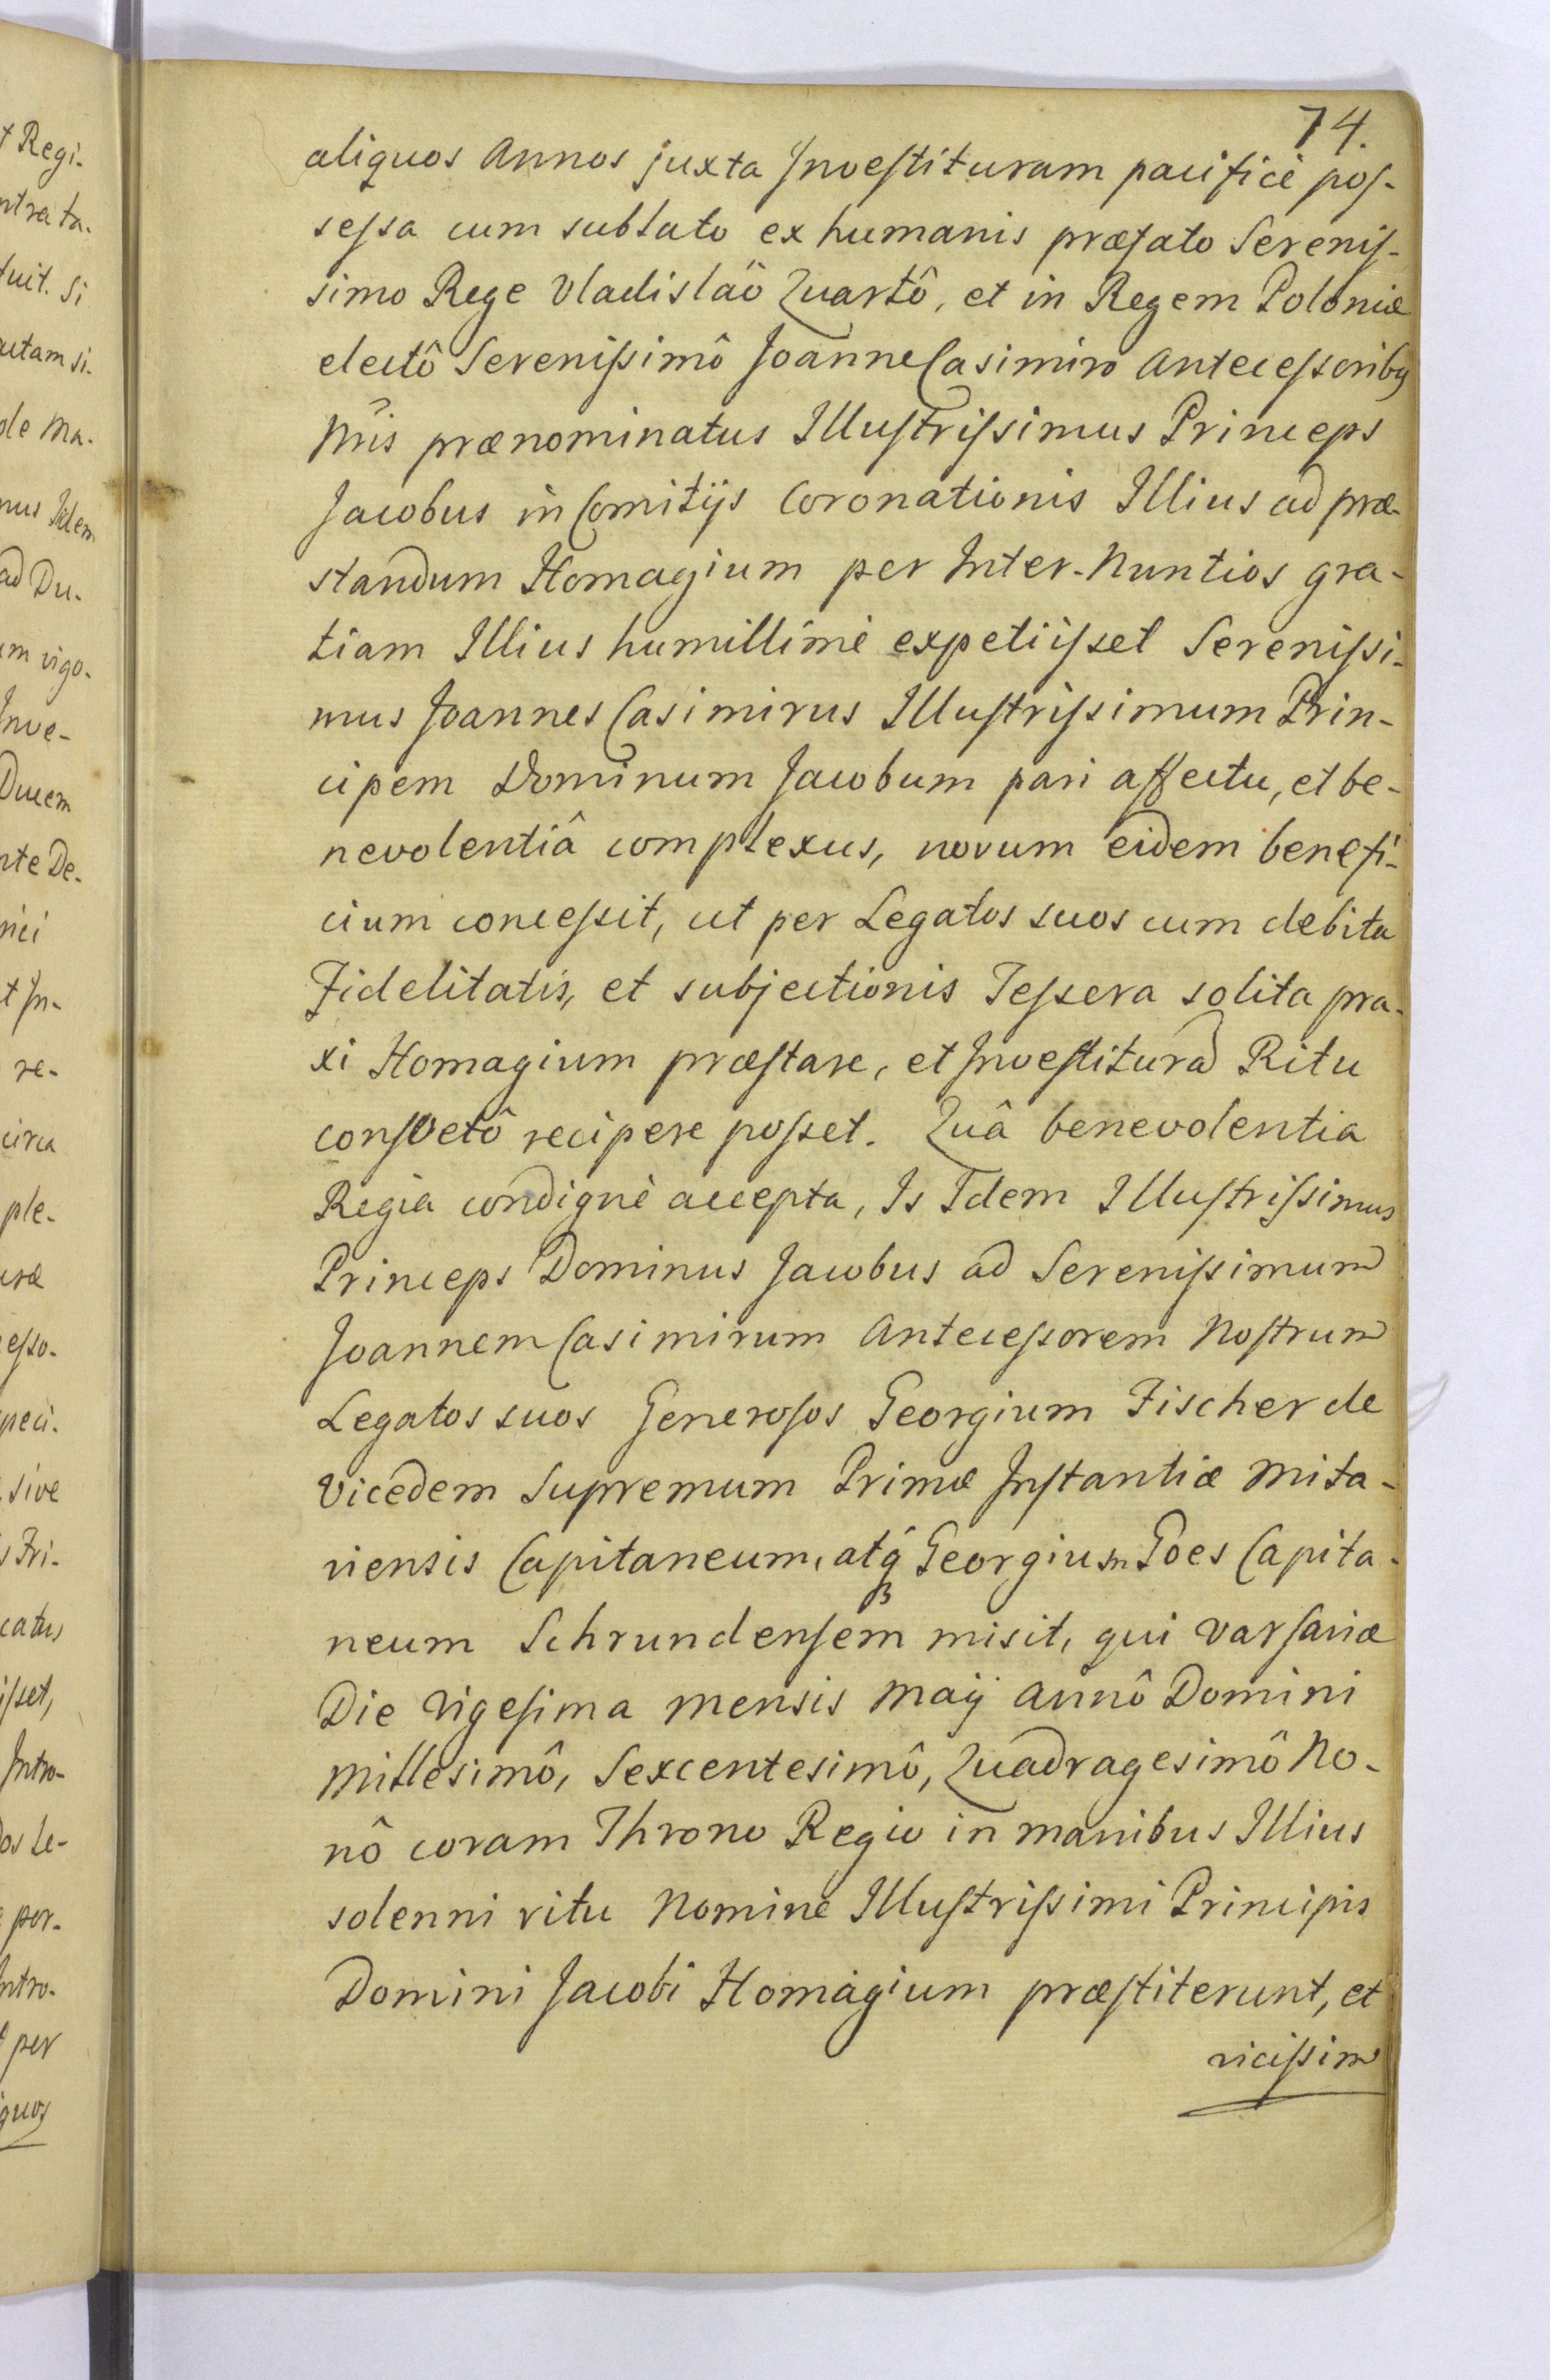 74.
aliquos Annos juxta Investituram pacificè pos-
sessa cum sublato ex humanis præfato Serenis-
simo Rege Vladislaô Quartô, et in Regem Poloniæ
electô Serenissimô Joanne Casimiro Antecessoribꝰ
Nr̃is prænominatus Illustrissimus Princeps
Jacobus in Comitijs Coronationis Illius ad præ-
standum Homagium per Inter-Nuntios gra-
tiam Illius humillimè expetiisset Serenissi-
mus Joannes Casimirus Illustrissimum Prin-
cipem Dominum Jacobum pari affectu, et be-
nevolentiâ complexus, novum eidem benefi-
cium concessit, ut per Legatos suos cum debita
Fidelitatis, et subjectionis Tessera solita pra-
xi Homagium præstare, et Investituram Ritu
consvetô recipere posset. Quâ benevolentia
Regia condignè accepta, Is Idem Illustrissimus
Princeps Dominus Jacobus ad Serenissimum
Joannem Casimirum Antecessorem Nostrum
Legatos suos Generosos Georgium Fischer de
Vicedem Supremum Primæ Instantiæ Mita-
viensis Capitaneum, atqꝫ Georgium Goes Capita-
neum Schrundensem misit, qui Varsaviæ
Die Vigesima Mensis Maij Annô Domini
Millesimô, Sexcentesimô, Quadragesimô No-
nô coram Throno Regio in manibus Illius
solenni ritu Nomine Illustrissimi Principis
Domini Jacobi Homagium præstiterunt, et
vicissim
t Regi-
ntra ta-
tuit. Si
utam si-
ole Ma-
nus Idem
ad Du-
um vigo-
Inve-
Ducem
nte De-
nici
t In-
re-
circa
ple-
uræ
esso-
peci-
sive
s Fri-
catus
isset,
Intro-
os Le-
per-
Intro-
per
iquos